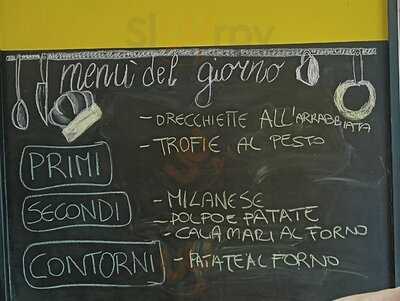 menù del giorno
- ORECCHIETTE ALL'ARRABBIATA
- TROFIE AL PESTO
PRIMI
SECONDI
- MILANESE
- POLPO E PATATE
- CALAMARI AL FORNO
CONTORNI
- PATATE AL FORNO